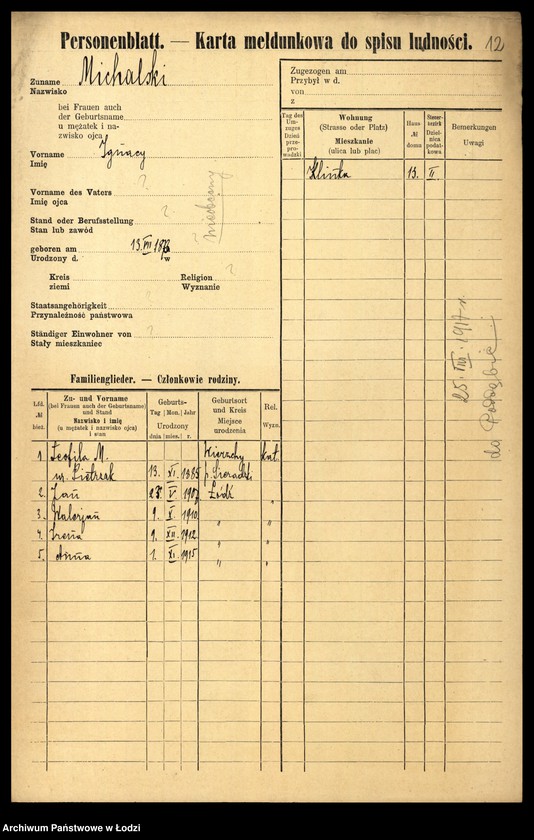 Personenblatt. — Karta meldunkowa do spisu ludności. 12
Zuname Michalski
Nazwisko
bei Frauen auch
der Geburtsname
u mężatek i na-
zwisko ojca
Vorname Ignacy
Imię
Vorname des Vaters ?
Imię ojca
Stand oder Berufsstellung ?
Stan lub zawód
nieobecny
geboren am 13. VII 1878
Urodzony d. w
Kreis Religion ?
ziemi Wyznanie
Staatsangehörigkeit ?
Przynależność państwowa
Ständiger Einwohner von ?
Stały mieszkaniec
Zugezogen am
Przybył w d.
von
z
Tag der Um-zuges Dzień prze-prowadzki
Wohnung
(Strasse oder Platz)
Mieszkanie
(ulica lub plac)
Haus № domu
Steuer-bezirk Dziel-nica podat-kowa
Bemerkungen
Uwagi
13. II.
25. VIII. 1917 r.
do
Familienglieder. — Członkowie rodziny.
Lfd. № bież.
Zu- und Vorname
(bei Frauen auch der Geburtsname)
und Stand
Nazwisko i imię
(u mężatek i nazwisko ojca)
i stan
Geburts-
Tag Mon. Jahr
Urodzony
dnia mies. r.
Geburtsort
und Kreis
Miejsce
urodzenia
Rel.
Wyzn.
1. Teofila M. Wierzchy kat.
ur. Pietrzak 13. XI. 1885 p. Sieradz
2. Jan 23. V 1907 Łódź "
3. Walerjan 9. X. 1910 " "
4. Irena 9. XII 1912. " "
5. Anna 1. XI. 1915 " "
Archiwum Państwowe w Łodzi